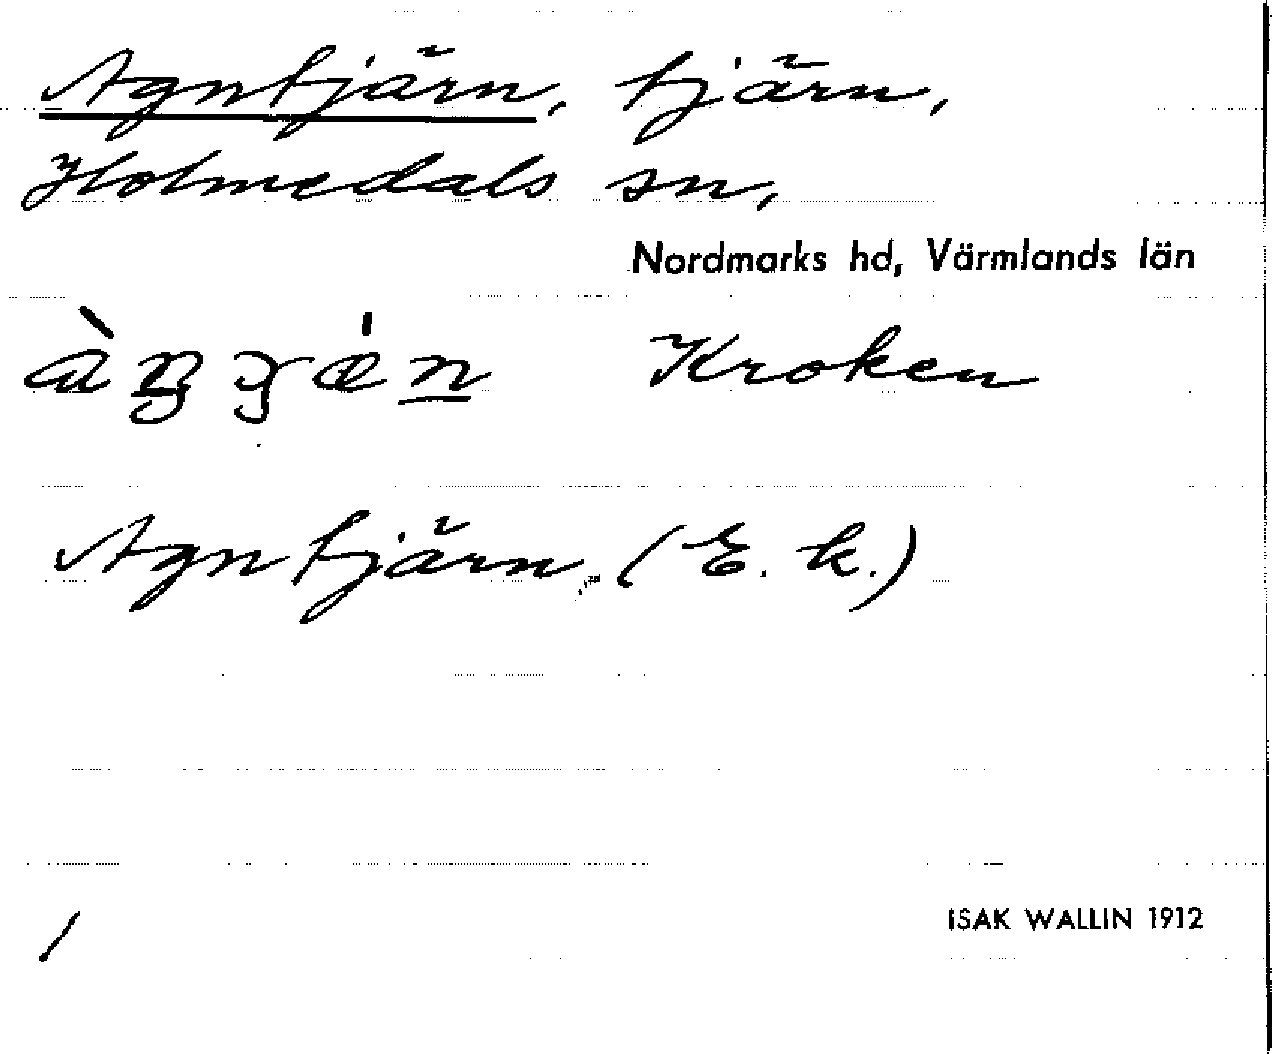 Agntjärn, tjärn,
Holmedals sn,
Nordmarks hd, Värmlands län
Kroken
Agntjärn (E. k.)
/
ISAK WALLIN 1912